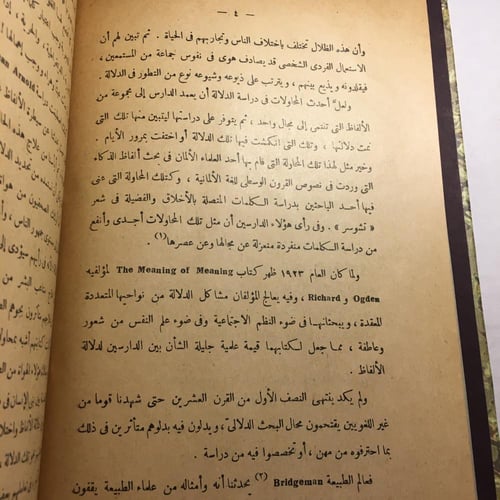 — ٤ —
وأن هذه الظلال تختلف باختلاف الناس وتجاربهم فى الحياة . ثم تبين لهم أن
الاستعمال الفردى الشخصى قد يصادف هوى فى نفوس جماعة من المستمعين ،
فيقلدونه ويذيع بينهم ، ويترتب على ذيوعه وشيوعه نوع من التطور فى الدلالة .
ولعل أحدث المحاولات فى دراسة الدلالة أن يعمد الدارس إلى مجموعة من
الألفاظ التى تنتمى إلى مجال واحد ، ثم يتوفر على دراستها ليتبين منها تلك التى
نمت دلالتها ، وتلك التى انكمشت فيها تلك الدلالة أو اختفت بمرور الأيام .
وخير مثل لهذا تلك المحاولة التى قام بها أحد العلماء الألمان فى بحث ألفاظ الذكاء
التى وردت فى نصوص القرن الوسطى للغة الألمانية ، وكذلك المحاولة التى عنى
فيها أحد الباحثين بدراسة الكلمات المتصلة بالأخلاق والفضيلة فى شعر
« تشوسر » . وفى رأى هؤلاء الدارسين أن مثل تلك المحاولات أجدى وأنفع
من دراسة الكلمات منفردة منعزلة عن مجالها وعن عصرها (١) .
ولما كان العام ١٩٢٣ ظهر كتاب The Meaning of Meaning لمؤلفيه
Ogden و Richard ، وفيه يعالج المؤلفان مشاكل الدلالة من نواحيها المتعددة
المعقدة ، ويبحثانها فى ضوء النظم الاجتماعية وفى ضوء علم النفس من شعور
وعاطفة ، مما جعل لكتابهما قيمة علمية جليلة الشأن بين الدارسين لدلالة
الألفاظ .
ولم يكد ينتهى النصف الأول من القرن العشرين حتى شهدنا قوما من
غير اللغويين يقتحمون مجال البحث الدلالى ، ويدلون فيه بدلوهم متأثرين فى ذلك
بما احترفوه من مهن ، أو تخصصوا فيه من دراسة .
فعالم الطبيعة Bridgeman (٢) يحدثنا أنه وأمثاله من علماء الطبيعة يقفون